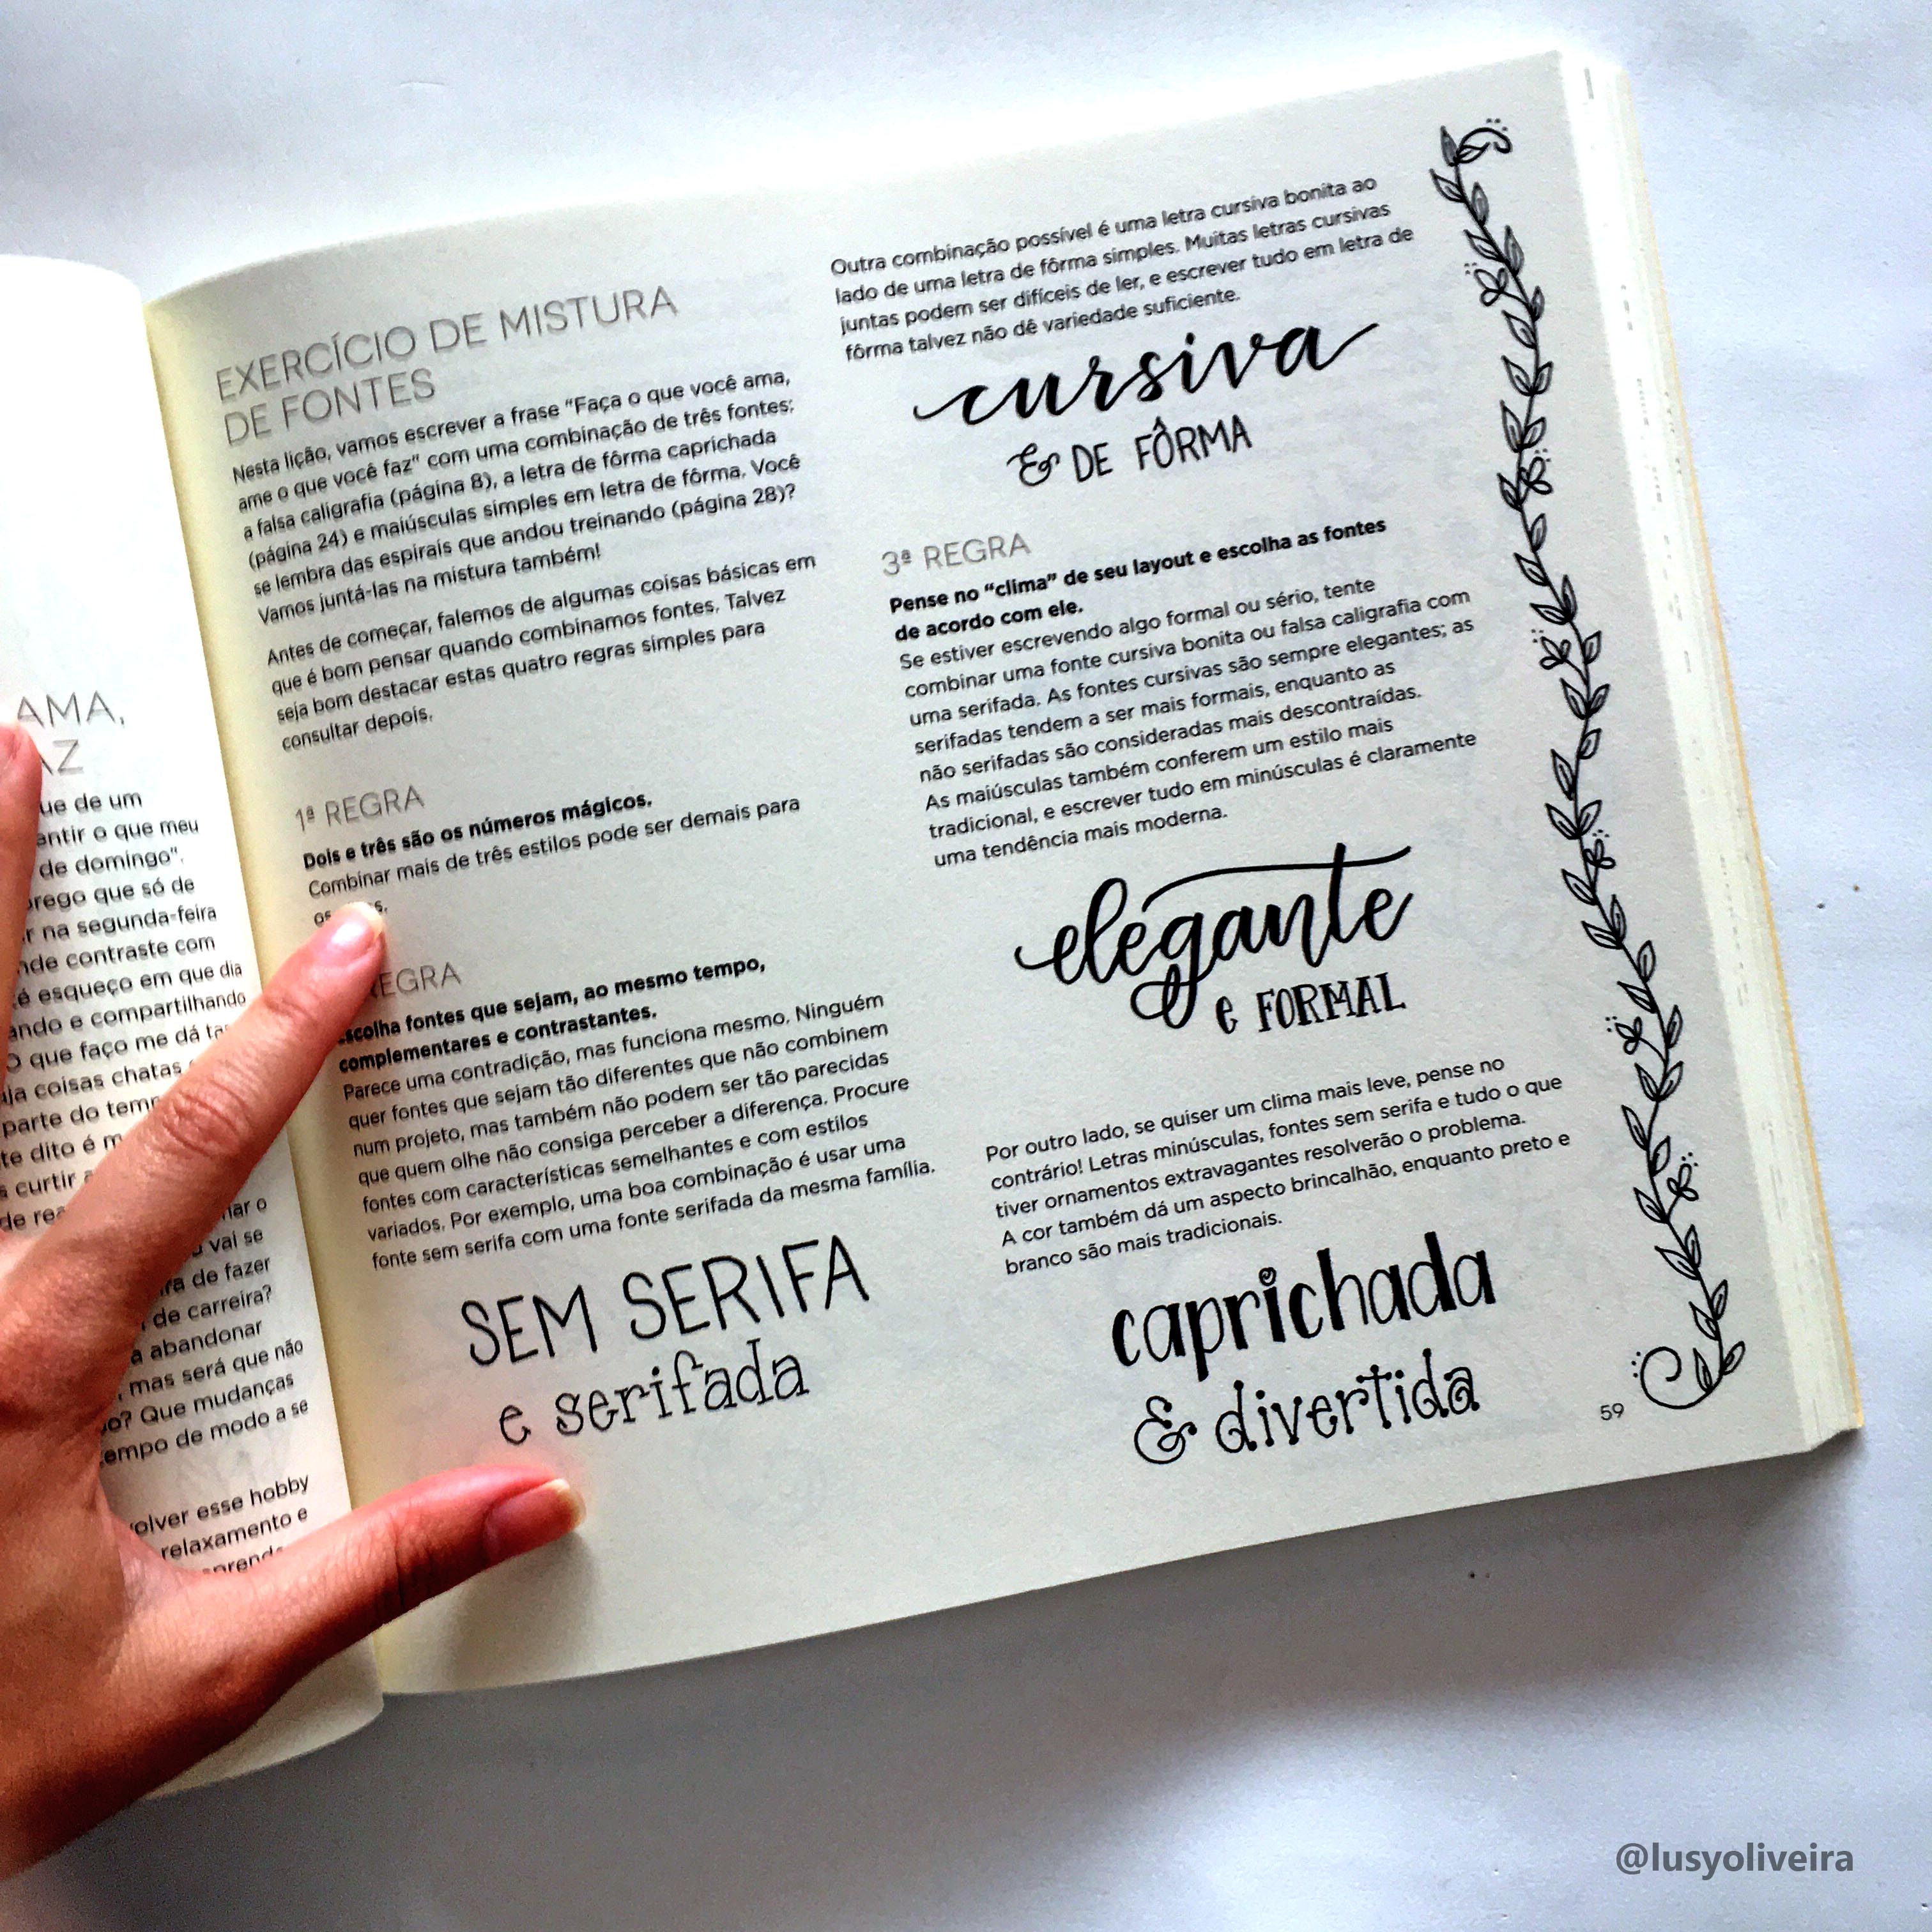 AMA,
AZ
ue de um
entir o que meu
de domingo".
prego que só de
r na segunda-feira
nde contraste com
é esqueço em que dia
ando e compartilhando
o que faço me dá
ja coisas chatas
parte do
te dito é
curtir
de
nar o
vai se
de fazer
de carreira?
a abandonar
, mas será que não
? Que mudanças
tempo de modo a se
olver esse hobby
relaxamento e
EXERCÍCIO DE MISTURA
DE FONTES
Nesta lição, vamos escrever a frase "Faça o que você ama,
ame o que você faz" com uma combinação de três fontes:
a falsa caligrafia (página 8), a letra de fôrma caprichada
(página 24) e maiúsculas simples em letra de fôrma. Você
se lembra das espirais que andou treinando (página 28)?
Vamos juntá-las na mistura também!
Antes de começar, falemos de algumas coisas básicas em
que é bom pensar quando combinamos fontes. Talvez
seja bom destacar estas quatro regras simples para
consultar depois.
1ª REGRA
Dois e três são os números mágicos.
Combinar mais de três estilos pode ser demais para
os
REGRA
Escolha fontes que sejam, ao mesmo tempo,
complementares e contrastantes.
Parece uma contradição, mas funciona mesmo. Ninguém
quer fontes que sejam tão diferentes que não combinem
num projeto, mas também não podem ser tão parecidas
que quem olhe não consiga perceber a diferença. Procure
fontes com características semelhantes e com estilos
variados. Por exemplo, uma boa combinação é usar uma
fonte sem serifa com uma fonte serifada da mesma família.
SEM SERIFA
e serifada
Outra combinação possível é uma letra cursiva bonita ao
lado de uma letra de fôrma simples. Muitas letras cursivas
juntas podem ser difíceis de ler, e escrever tudo em letra de
fôrma talvez não dê variedade suficiente.
cursiva
& DE FÔRMA
3ª REGRA
Pense no “clima” de seu layout e escolha as fontes
de acordo com ele.
Se estiver escrevendo algo formal ou sério, tente
combinar uma fonte cursiva bonita ou falsa caligrafia com
uma serifada. As fontes cursivas são sempre elegantes; as
serifadas tendem a ser mais formais, enquanto as
não serifadas são consideradas mais descontraídas.
As maiúsculas também conferem um estilo mais
tradicional, e escrever tudo em minúsculas é claramente
uma tendência mais moderna.
elegante
e FORMAL
Por outro lado, se quiser um clima mais leve, pense no
contrário! Letras minúsculas, fontes sem serifa e tudo o que
tiver ornamentos extravagantes resolverão o problema.
A cor também dá um aspecto brincalhão, enquanto preto e
branco são mais tradicionais.
caprichada
& divertida
59
@lusyoliveira